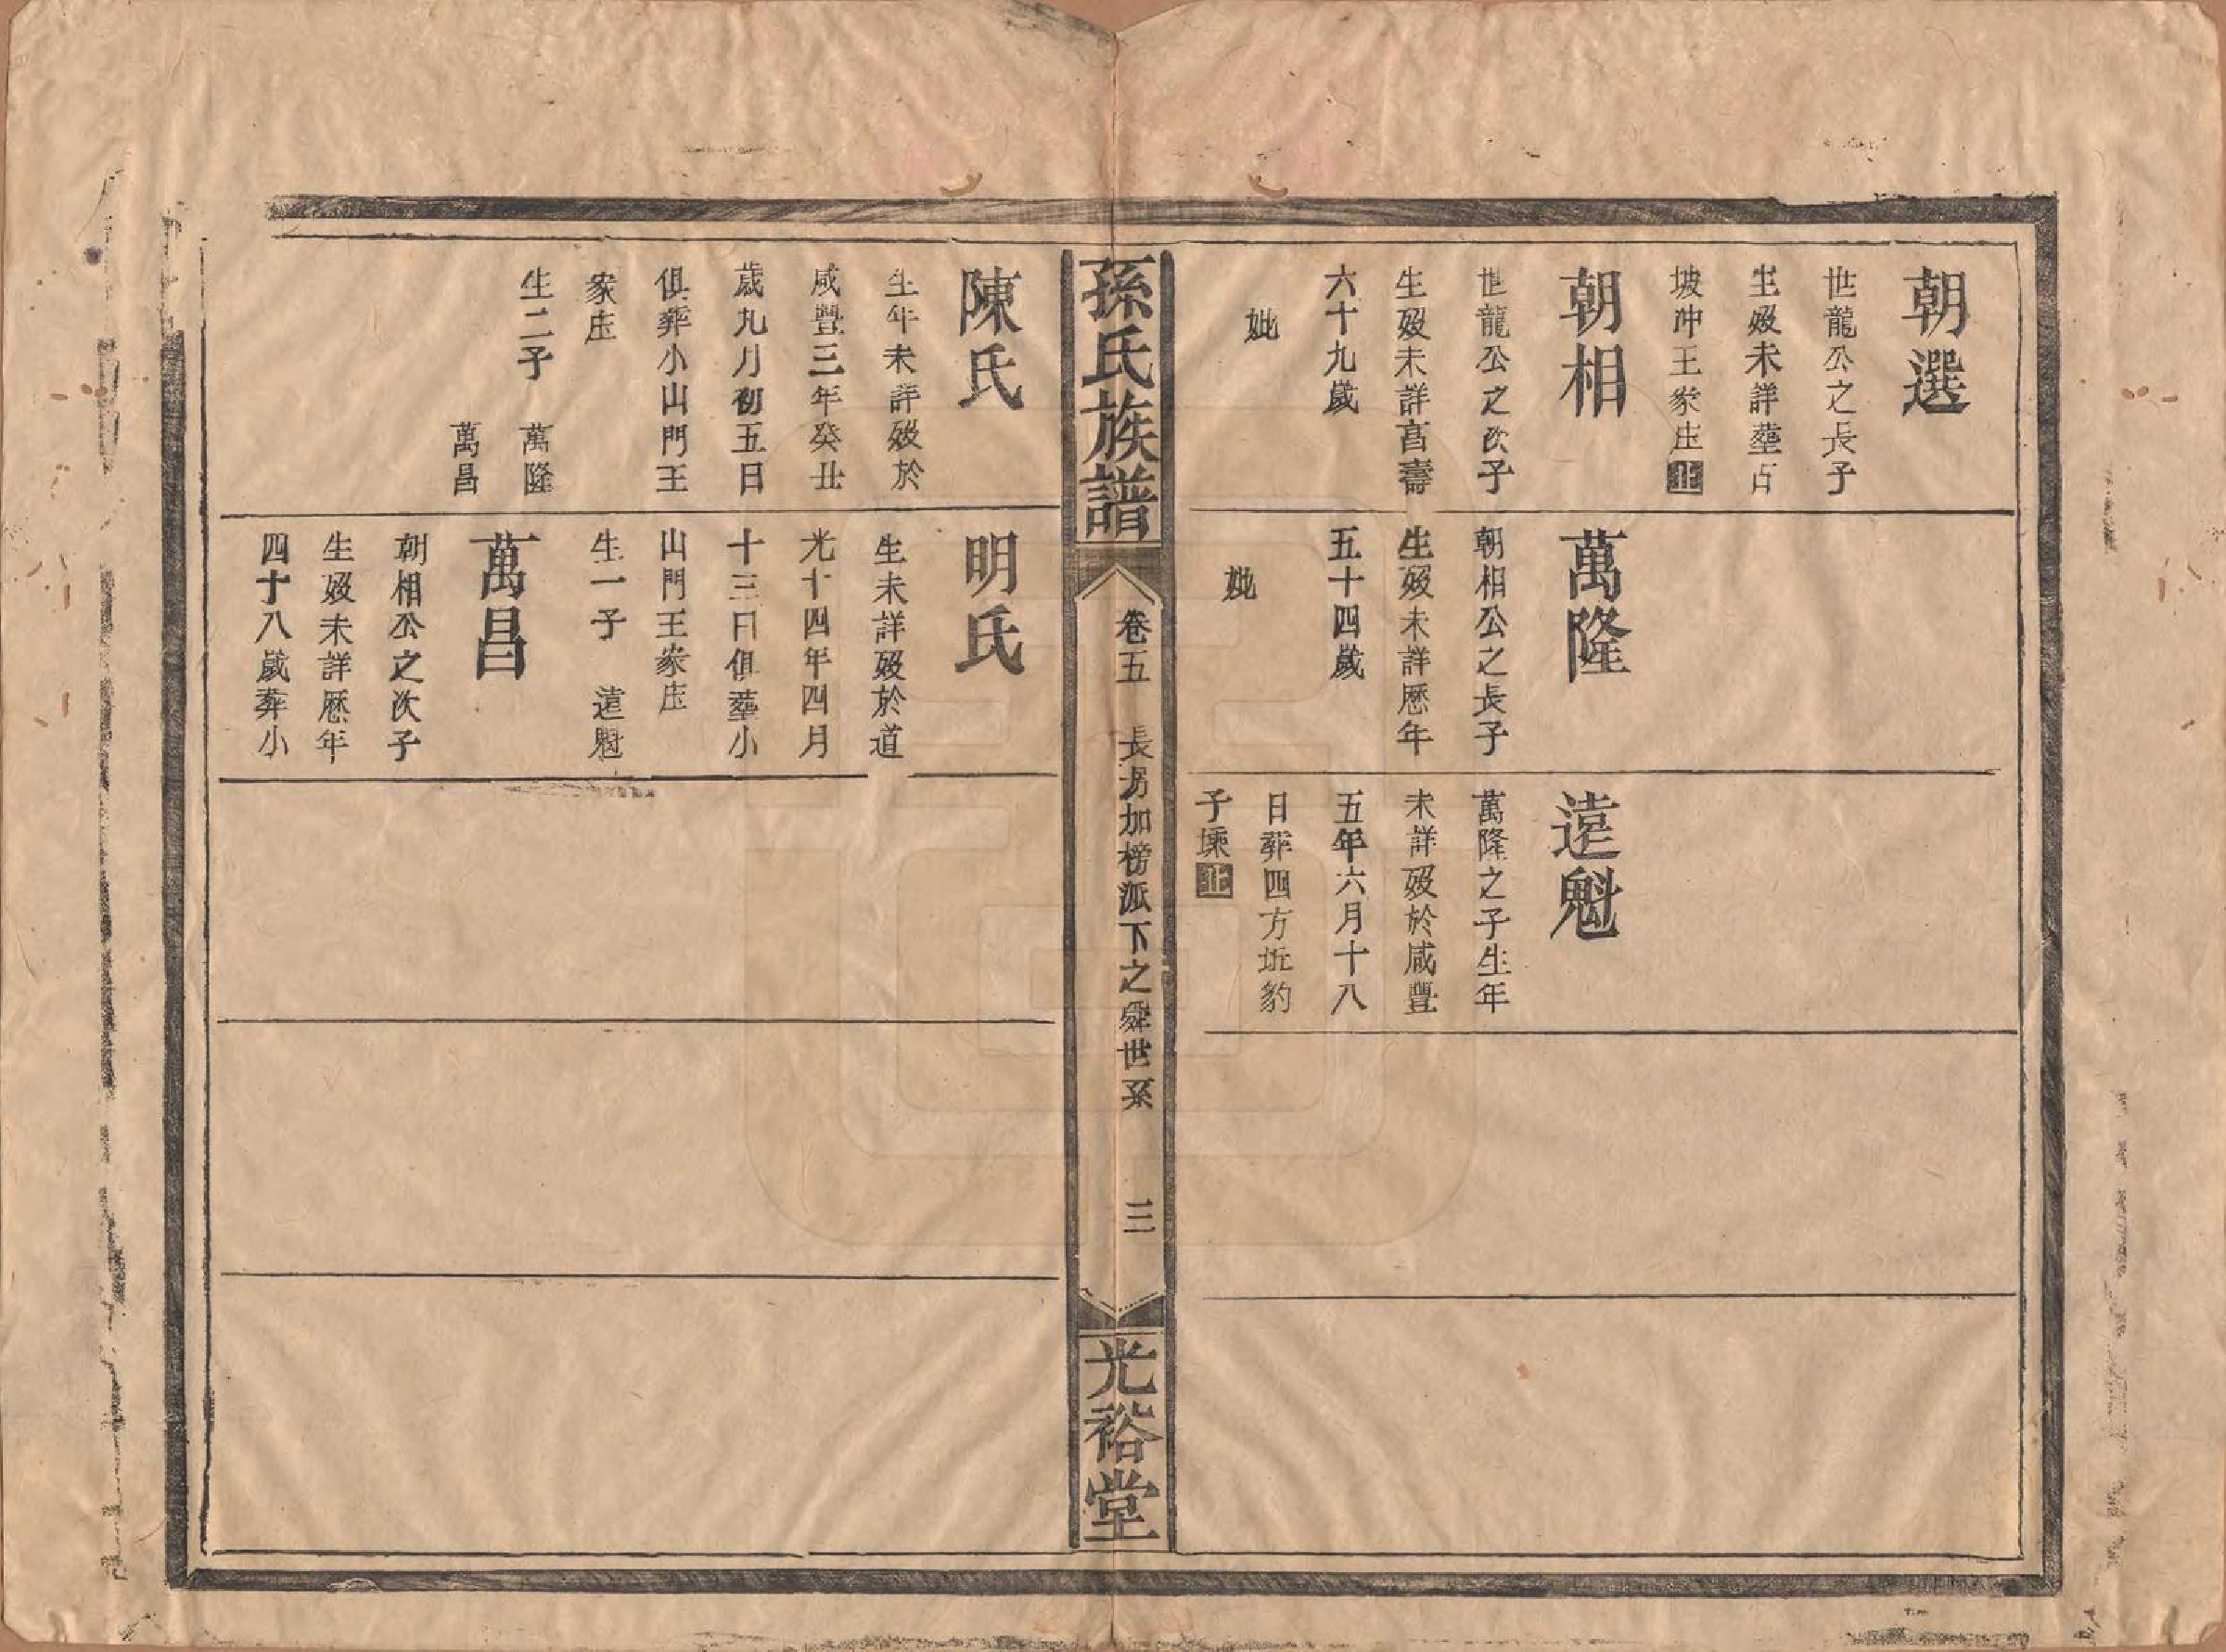 朝選
世龍公之長子
生歿未詳塟占
坡冲王家庄止
朝相
世龍公之次子
生歿未詳亯壽
六十九歲
妣
萬隆
朝相公之長子
生歿未詳厯年
五十四歲
妣
遠魁
萬隆之子生年
未詳歿於咸豐
五年六月十八
日葬四方坵豹
子㙩止
孫氏族譜
卷五
長房加榜派下之舜世系
三
光裕堂
陳氏
生年未詳歿於
咸豐三年癸丑
歲九月初五日
俱葬小山門王
家庄
生二子 萬隆
萬昌
明氏
生未詳歿於道
光十四年四月
十三日俱塟小
山門王家庄
生一子 遠魁
萬昌
朝相公之次子
生歿未詳厯年
四十八歲葬小